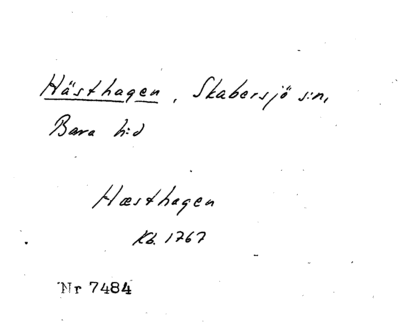 Hästhagen, Skabersjö s:n,
Bara h:d
Hæsthagen
Kb. 1767
Nr 7484